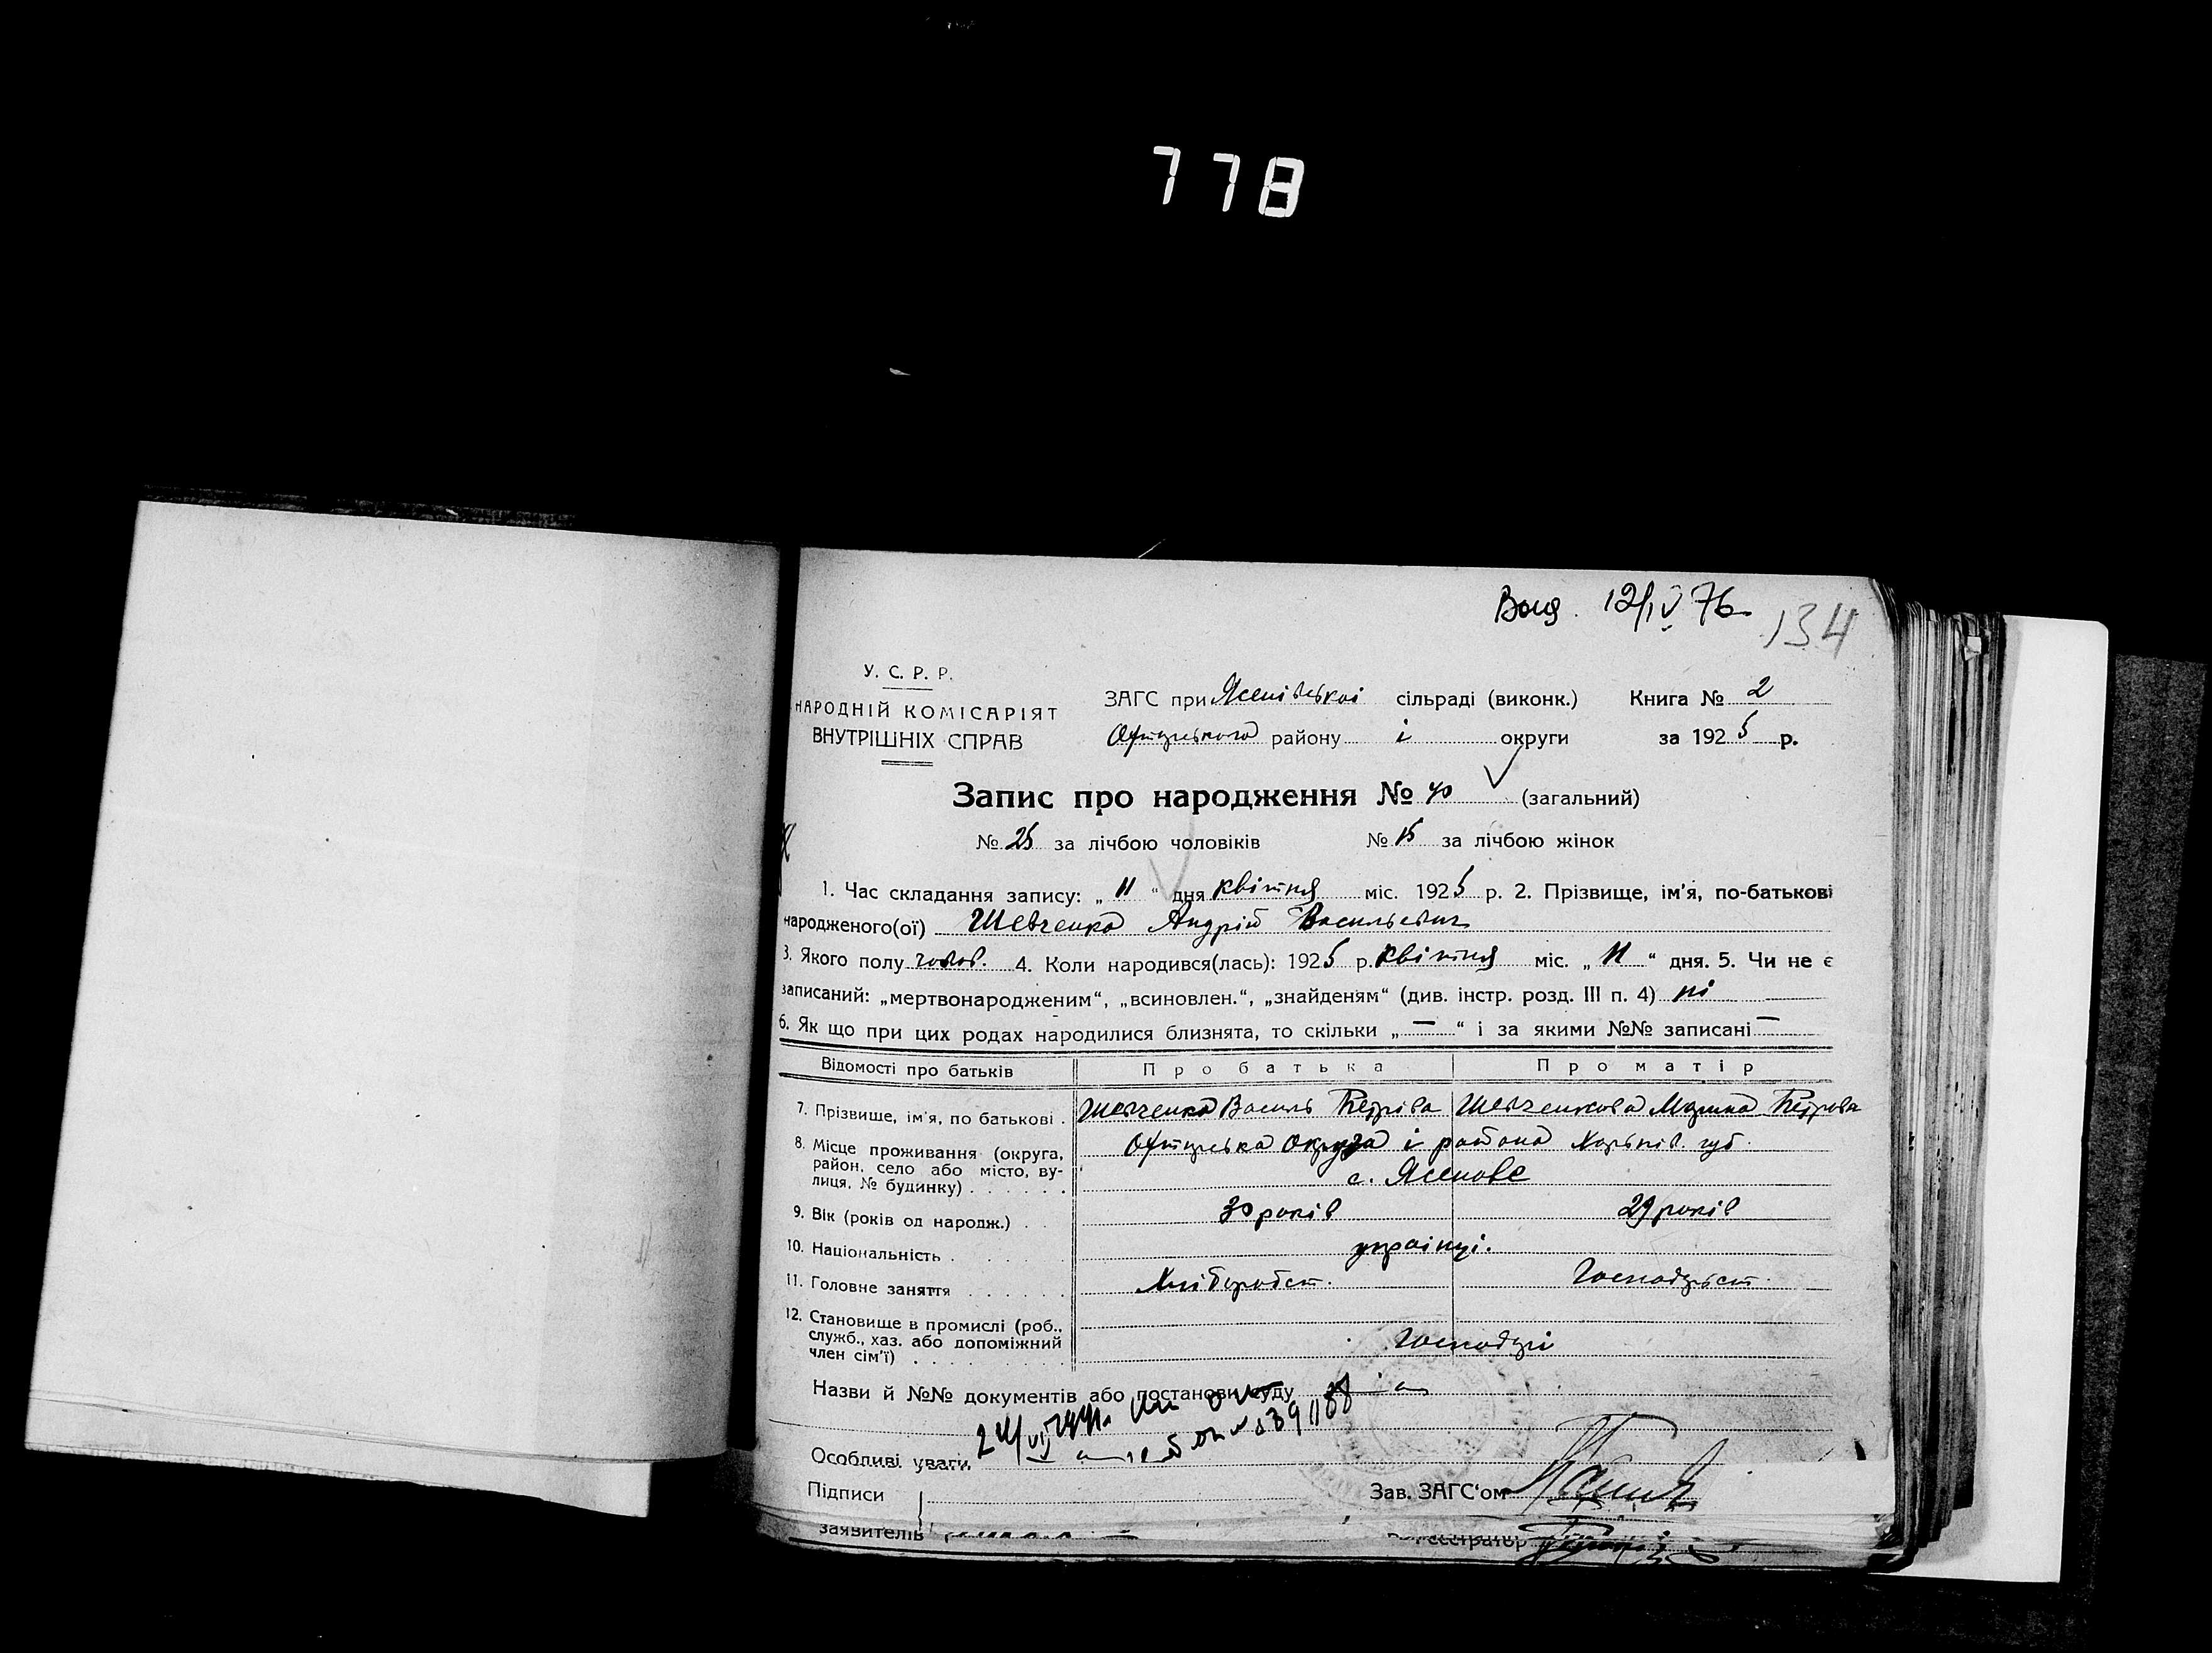 778
12/IV 76 134
У. С. Р. Р.
НАРОДНІЙ КОМІСАРІЯТ
ВНУТРІШНІХ СПРАВ
ЗАГС при Ясенівській сільраді (виконк.) Книга № 2
Охтирського району і округи за 1925 р.
Запис про народження № 40 (загальний)
№ 25 за лічбою чоловіків № 15 за лічбою жінок
1. Час складання запису: „ 11 “ дня квітня міс. 1925 р. 2. Прізвище, ім'я, по-батькові
народженого(ої) Шевченко Андрій Васильевич
3. Якого полу чолов. 4. Коли народився(лась): 1925 р. квітня міс. „ 11 “ дня. 5. Чи не є
записаний: „мертвонародженим“, „всиновлен.“, „знайденям“ (див. інстр. розд. III п. 4) ні
6. Як що при цих родах народилися близнята, то скільки „ — “ і за якими №№ записані —
Відомості про батьків Про батька Про матір
7. Прізвище, ім'я, по батькові . Шевченко Василь Петрова Шевченкова Петрова
8. Місце проживання (округа,
район, село або місто, ву-
лиця, № будинку) . . . . . .
Охтирська Округа і района Харьків. губ.
с. Ясенове
9. Вік (років од народж.) . . 30 років 29 років
10. Національність . . . . . українці.
11. Головне заняття . . . . . . Хліборобст. Господарст.
12. Становище в промислі (роб.,
служб., хаз. або допоміжний
член сім'ї) . . . . . . . . .
Господарі
Назви й №№ документів або постанови суду
Особливі уваги
Підписи
заявителів
Зав. ЗАГС'ом
Реєстратор